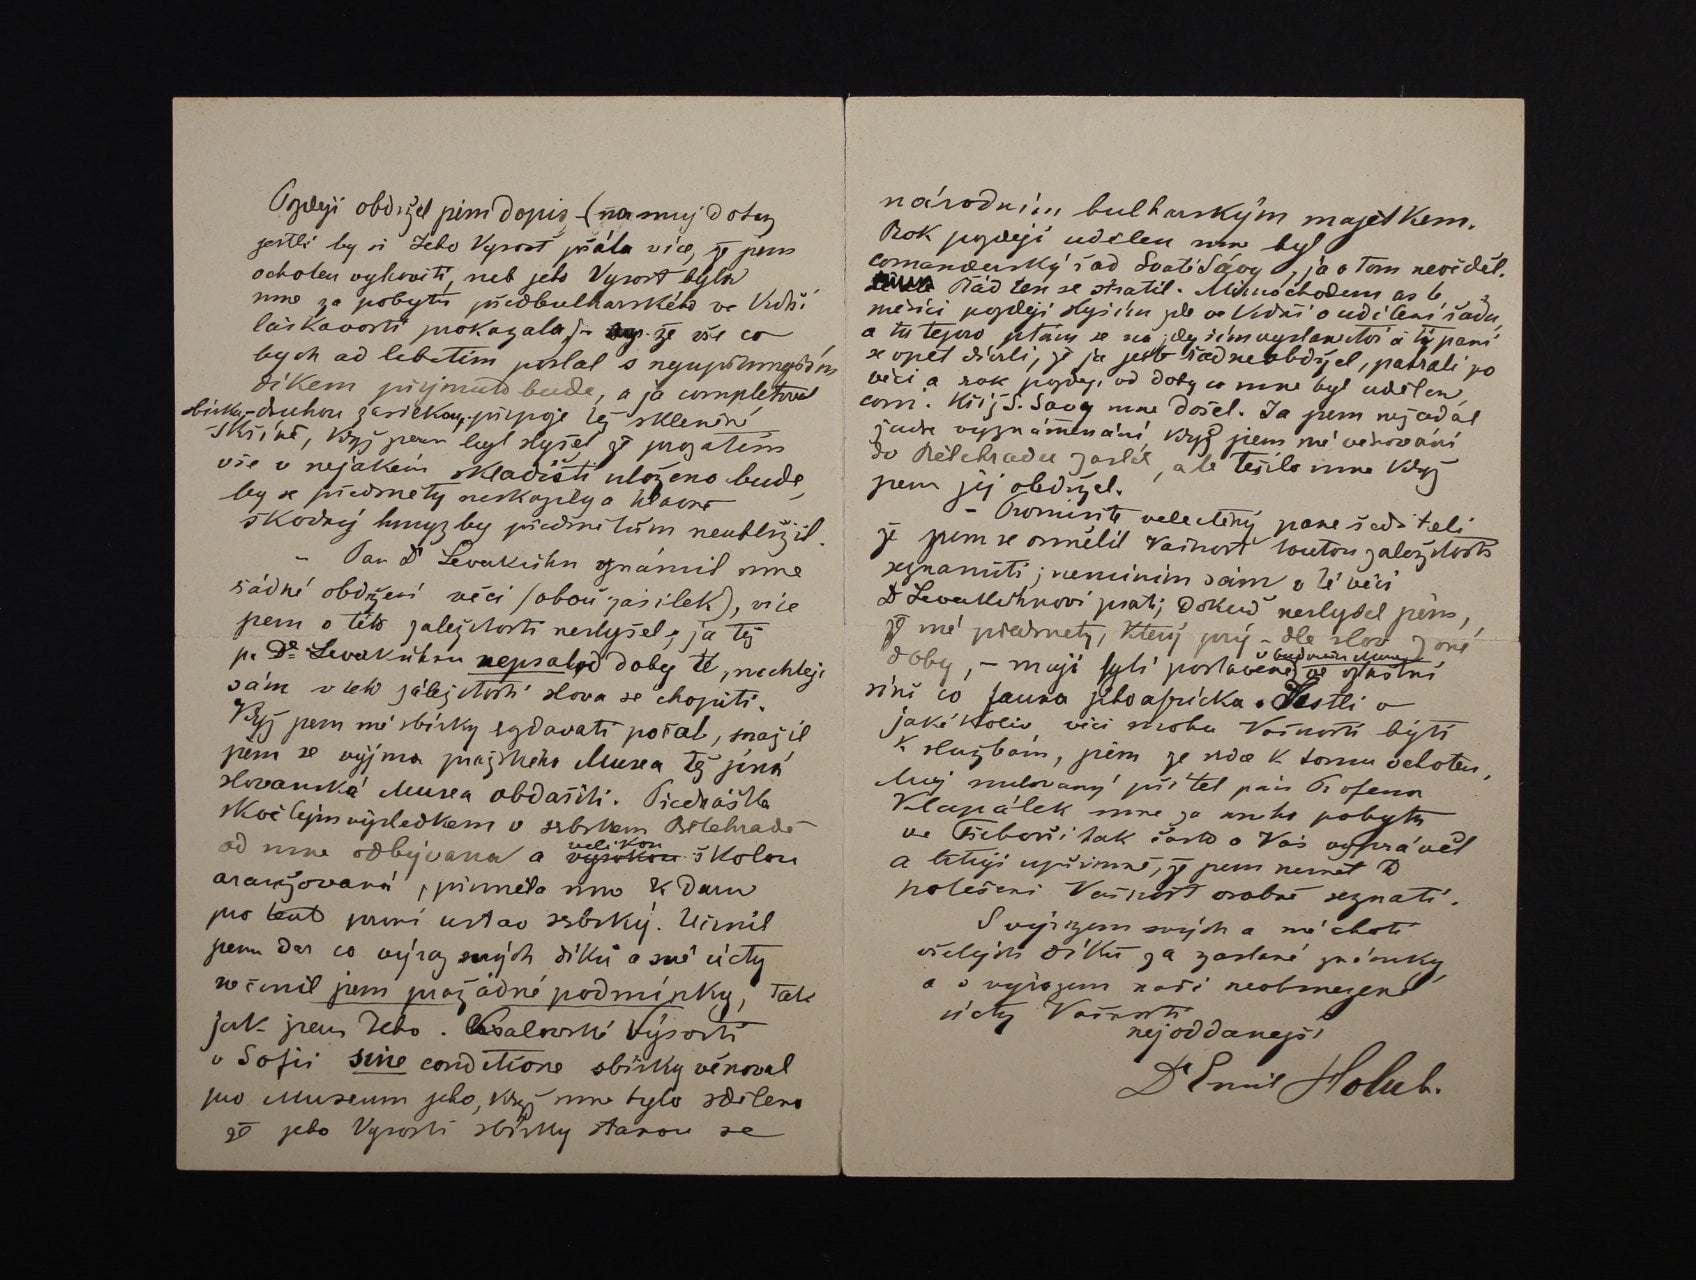 Později obdržel jsem dopis – (na muj dotaz
jestli by si Jeho Vysost přála více, že jsem
ochoten vyhověti, neb jeho Vysost byla
mne za pobytu předbulharského ve Vídni
láskavosti prokazala) – že vše co
bych ad libitum poslal s nejupřímnějším
díkem přijmuto bude, a ja completoval
sbírku druhou zasilkou, připoje tež skleněné
skříně, když jsem byl slyšel že prozatím
vše v nejakém skladišti uloženo bude,
by se předměty neskazily a hlavně
škodný hmyz by předmětům neublížil.
– Pan Dr Leverkühn oznámil mne
řádné obdržení věci (obou zasilek), více
jsem o této záležitosti neslyšel; ja tež
p. Dr. Leverkühnu nepsal od doby té, nechtěje
sám v této záležitosti slova se chopiti.
Když jsem mé sbírky rozdavati počal, snažil
jsem se vyjma pražského Musea tež jiná
slovanská Musea obdařiti. Přednáška
skvělým výsledkem v srbském Bělehradě
od mne odbývana a velikou vysokou školou
aranžovaná, přiměla mne k daru
pro tent první ustav srbský. Učinil
jsem dar co výraz mých díků a mé úcty
nečinil jsem pražádné podmínky, tak
jak jsem Jeho. Královské Výsosti
v Sofii sine conditione sbírky věnoval
pro Museum jeho, když mne bylo sděleno
že jeho Vysosti sbírky stanou se
národním bulharským majetkem.
Rok později udělen mne byl
comandeurský řád Svatí Sávy, ja o tom nevěděl.
Řád ten se stratil. Mimochodem as 6
měsíců později slyším zde ve Vídni o udělení řádu,
a tu tejdo ptám se na zdejším vyslanectví a tí paní
se opět divili, že ja ješto řád neobdržel, patrali po
věci a rok později od doby co mne byl udělen,
com. Kříž S. Savy mne došel. Ja jsem nežadal
žadné vyznámenání, když jsem mé věnování
do Bělehradu zaslal, ale těšilo mne když
jsem jej obdržel.
– Promiňte velectěný pane řediteli
že jsem se osmělil Vašnost toutou záležitostí
seznamiti; neminím sám v té věci
Dr Leverkühnovi psati; dokud neslyšel jsem,
že mé předměty, který prý – dle slov z oné
doby, – mají byti postavené v budoucím Museu ve zvláštní
síni co fauna jihoafrická. Jestli v
jakékoliv věci mohu Vašnosti býti
k službám, jsem ze srdce k tomu ochoten,
Muj milovaný přítel pán Profesor
Klapálek mne za mého pobytu
ve Třeboni tak často o Vás vyprávěl
a lituji upřímně, že jsem neměl
potěšení Vašnost osobně seznati.
S výrazem mých a mé choti
vřelých díků za zaslané známky
a s výrazem naší neobmezené
úcty Vašnosti
nejoddanější
Dr Emil Holub.